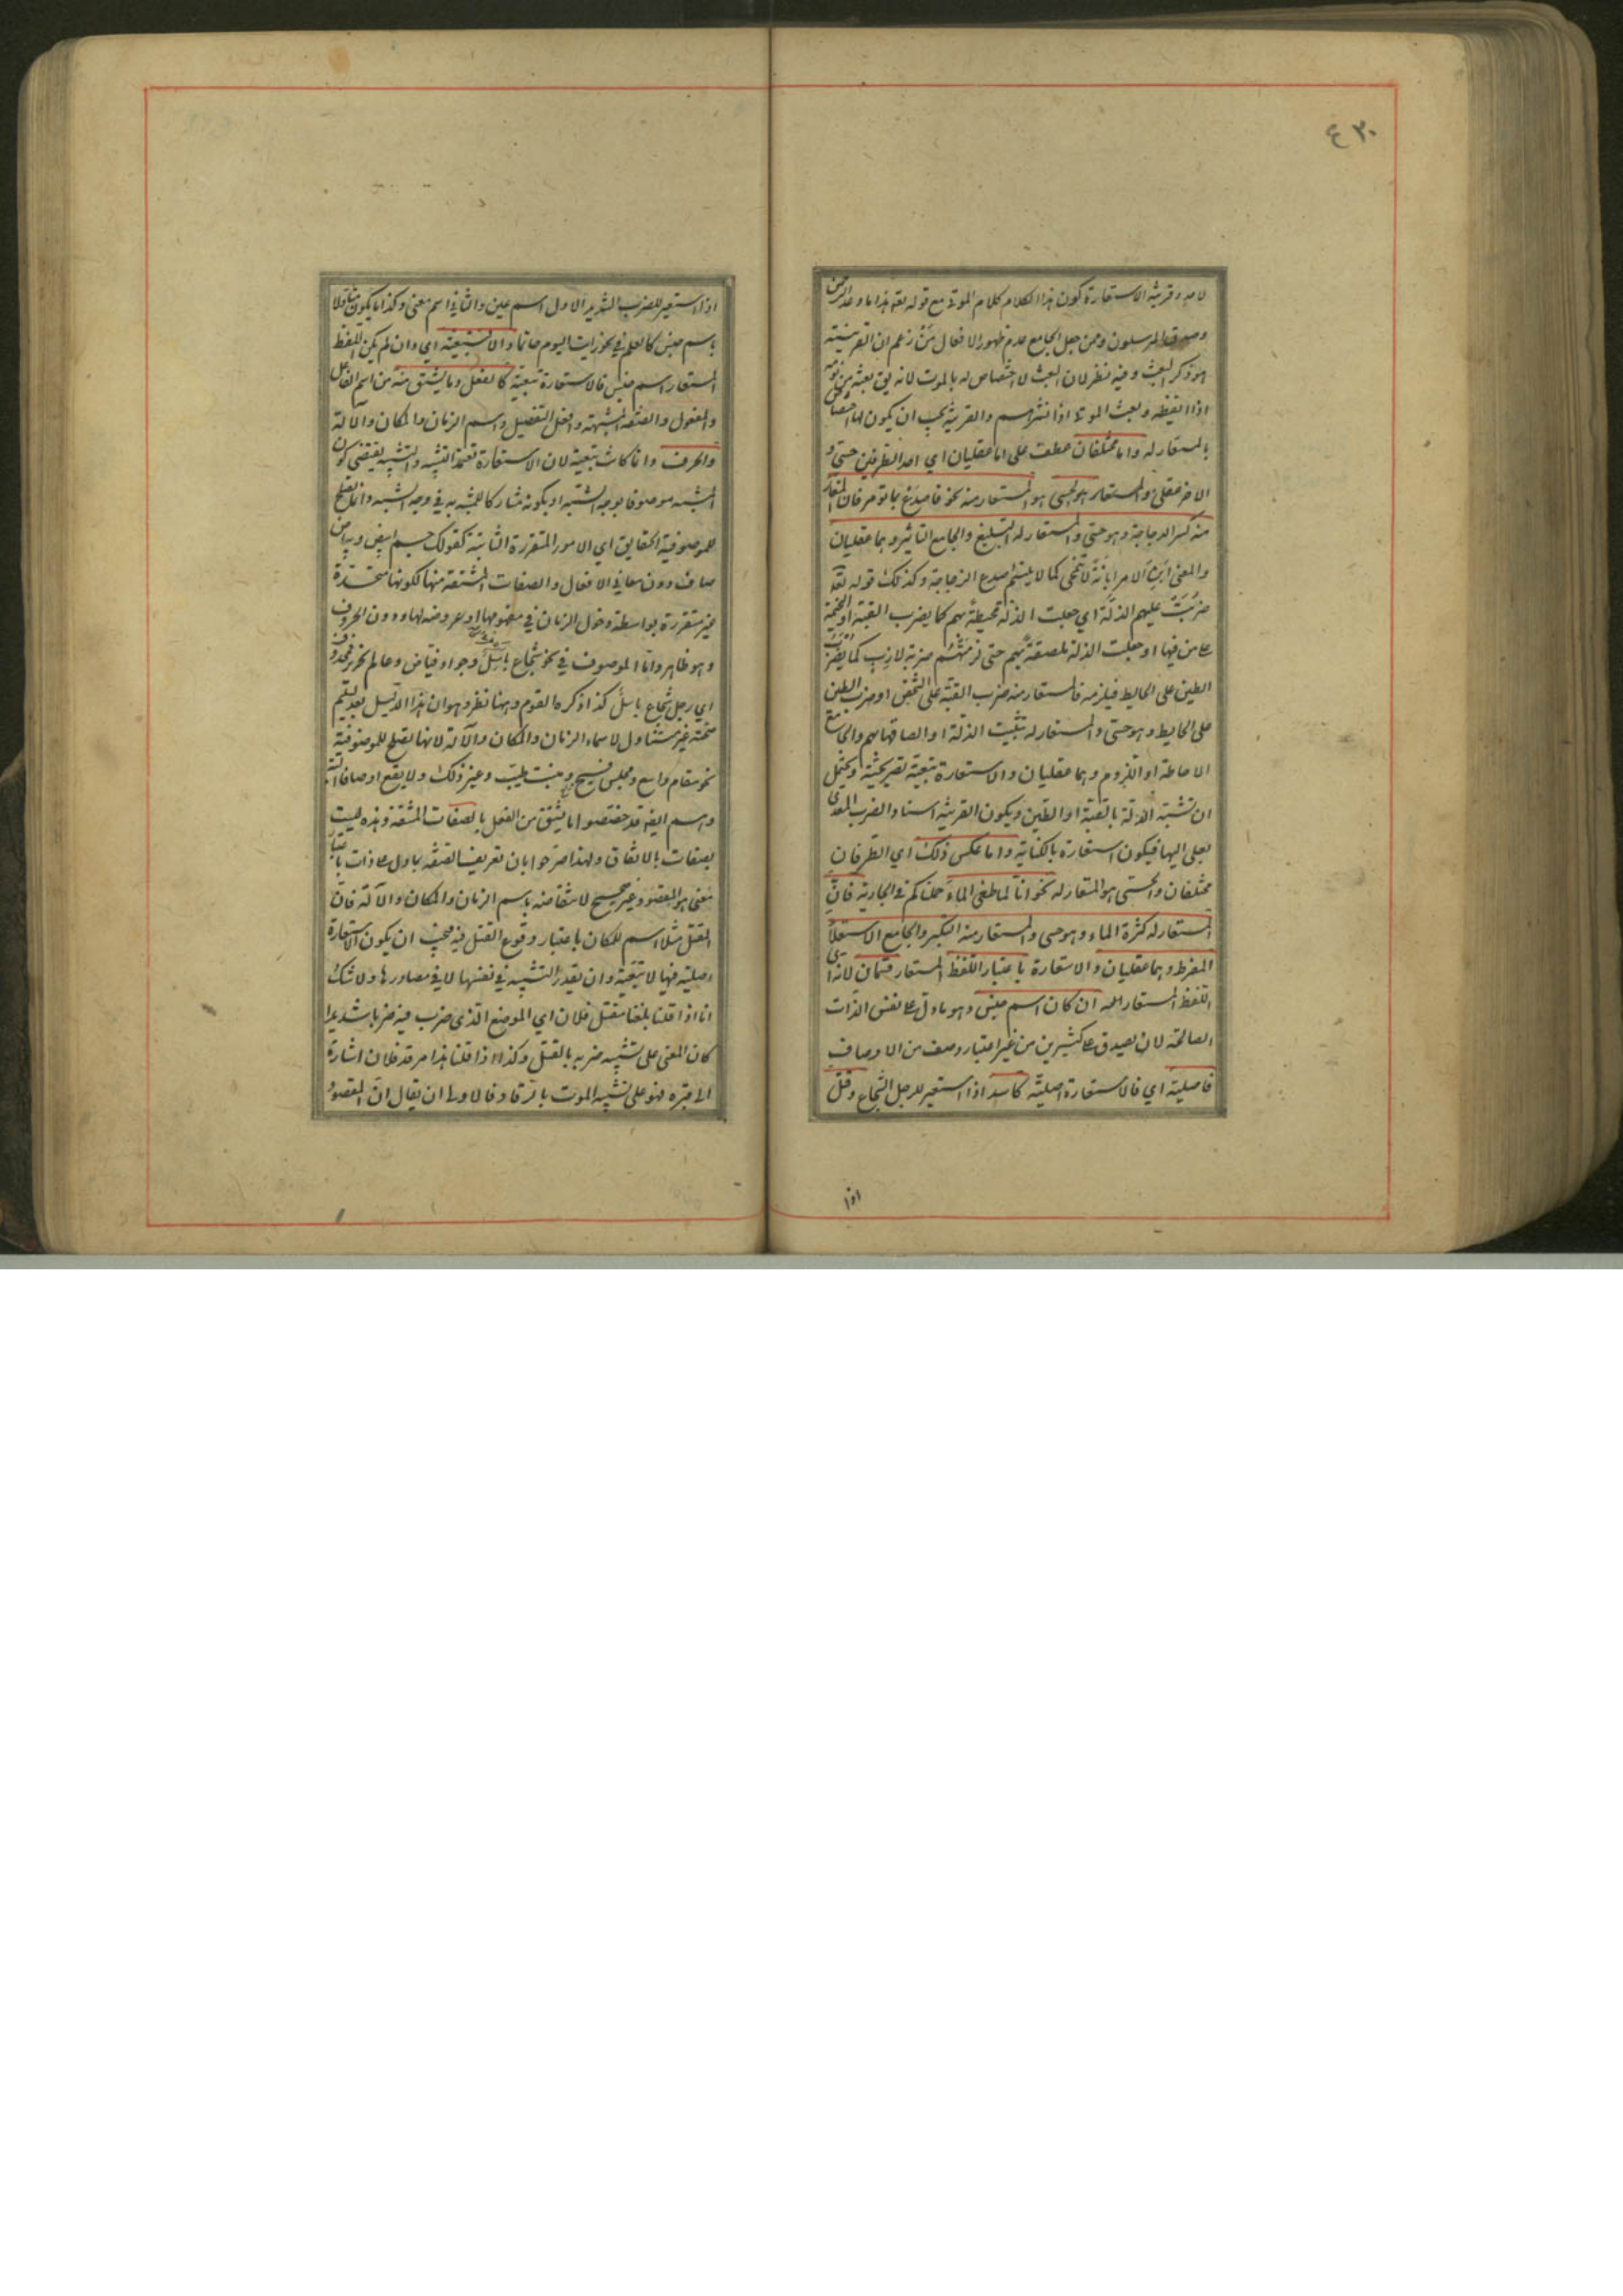 ٤٣٠
لاحد وقرينة الاستعارة كون هذا الكلام كلام الموتى مع قوله تعه هذا ما وعد الرحمن
وصدق المرسلون ومن جعل الجامع عدم ظهور الافعال من زعم ان القرينة
هو ذكر البعث وفيه نظر لان البعث لا اختصاص له بالموت لانه يق بعثه من نومه
اذا ايقظه وبعث الموتى اذا نشرهم والقرينة يجب ان يكون لها اختصاص
بالمستعار له واما مختلفان عطف على اما عقليان اي احد الطرفين حسي و
الاخر عقلي والحسي هو المستعار منه نحو فاصدع بما تؤمر فان المستعار
منه كسر الزجاجة وهو حسي والمستعار له التبليغ والجامع التاثير وهما عقليان
والمعنى ابن الامر ابانة لا تنمحي كما لا يلتئم صدع الزجاجة وكذلك قوله تعه
ضربت عليهم الذلة اي جعلت الذلة محيطة بهم كما يضرب القبة او الخيمة
على من فيها او جعلت الذلة ملصقة بهم حتى لزمتهم ضربة لازب كما يضرب
الطين على الحايط فيلزمه فالمستعار منه ضرب القبة على الشخص او ضرب الطين
على الحايط وهو حسي والمستعار له تثبيت الذلة او الصاقها بهم والجامع
الاحاطة او اللزوم وهما عقليان والاستعارة تبعية تصريحية ويحتمل
ان تشبه الذلة بالقبة او الطين ويكون القرينة اسناد الضرب المعدى
بعلى اليها فيكون استعارة بالكناية واما عكس ذلك اي الطرفان
مختلفان والحسي هو المستعار له نحو انا لما طغى الماء حملناكم في الجارية فان
المستعار له كثرة الماء وهو حسي والمستعار منه التكبر والجامع الاستعلاء
المفرط وهما عقليان والاستعارة باعتبار اللفظ المستعار قسمان لانه اي
اللفظ المستعار ان كان اسم جنس وهو ما دل على نفس الذات
الصالحة لان يصدق على كثيرين من غير اعتبار وصف من الاوصاف
فاصلية اي فالاستعارة اصلية كاسد اذا استعير للرجل الشجاع وقتل
اذا
اذا استعير للضرب الشديد الاول اسم عين والثاني اسم معنى وكذا ما يكون متاولا
باسم جنس كالعلم في نحو رايت اليوم حاتما والا فتبعية اي وان لم يكن اللفظ
المستعار اسم جنس فالاستعارة تبعية كالفعل وما يشتق منه من اسم الفاعل
والمفعول والصفة المشبهة وافعل التفضيل واسم الزمان والمكان والآلة
والحرف وانما كانت تبعية لان الاستعارة تعتمد التشبيه والتشبيه يقتضي كون
المشبه موصوفا بوجه الشبه او بكونه مشاركا للمشبه به في وجه الشبه وانما يصلح
للموصوفية الحقايق اي الامور المتقررة الثابتة كقولك جسم ابيض وبياض
صاف دون معاني الافعال والصفات المشتقة منها لكونها متجددة
غير متقررة بواسطة دخول الزمان في مفهومها او عروضه لها ودون الحروف
وهو ظاهر واما الموصوف في نحو شجاع باسل وجواد فياض وعالم نحرير فمحذوف
اي رجل شجاع باسل كذا ذكره القوم وههنا نظر وهو ان هذا الدليل بعد تسليم
صحته غير متناول لاسماء الزمان والمكان والآلة لانها تصلح للموصوفية
نحو مقام واسع ومجلس فسيح ومنبت طيب وغير ذلك ولا يقع اوصافا البتة
وهم ايضه قد خصصوا ما يشتق من الفعل بالصفات المشتقة وهذه ليست
بصفات بالاتفاق ولهذا صرحوا بان تعريف الصفة بما دل على ذات باعتبار
معنى هو المقصود غير صحيح لانتقاضه باسم الزمان والمكان والآلة فان
المقتل مثلا اسم للمكان باعتبار وقوع القتل فيه فيجب ان يكون الاستعارة
اصلية فيها لا تبعية وان يقدر التشبيه في نفسها لا في مصادرها ولا شك
انا اذا قلنا بلغنا مقتل فلان اي الموضع الذي ضرب فيه ضربا شديدا
كان المعنى على تشبيه ضربه بالقتل وكذا اذا قلنا هذا مرقد فلان اشارة
الى قبره فهو على تشبيه الموت بالرقاد فالاولى ان يقال ان المقصود